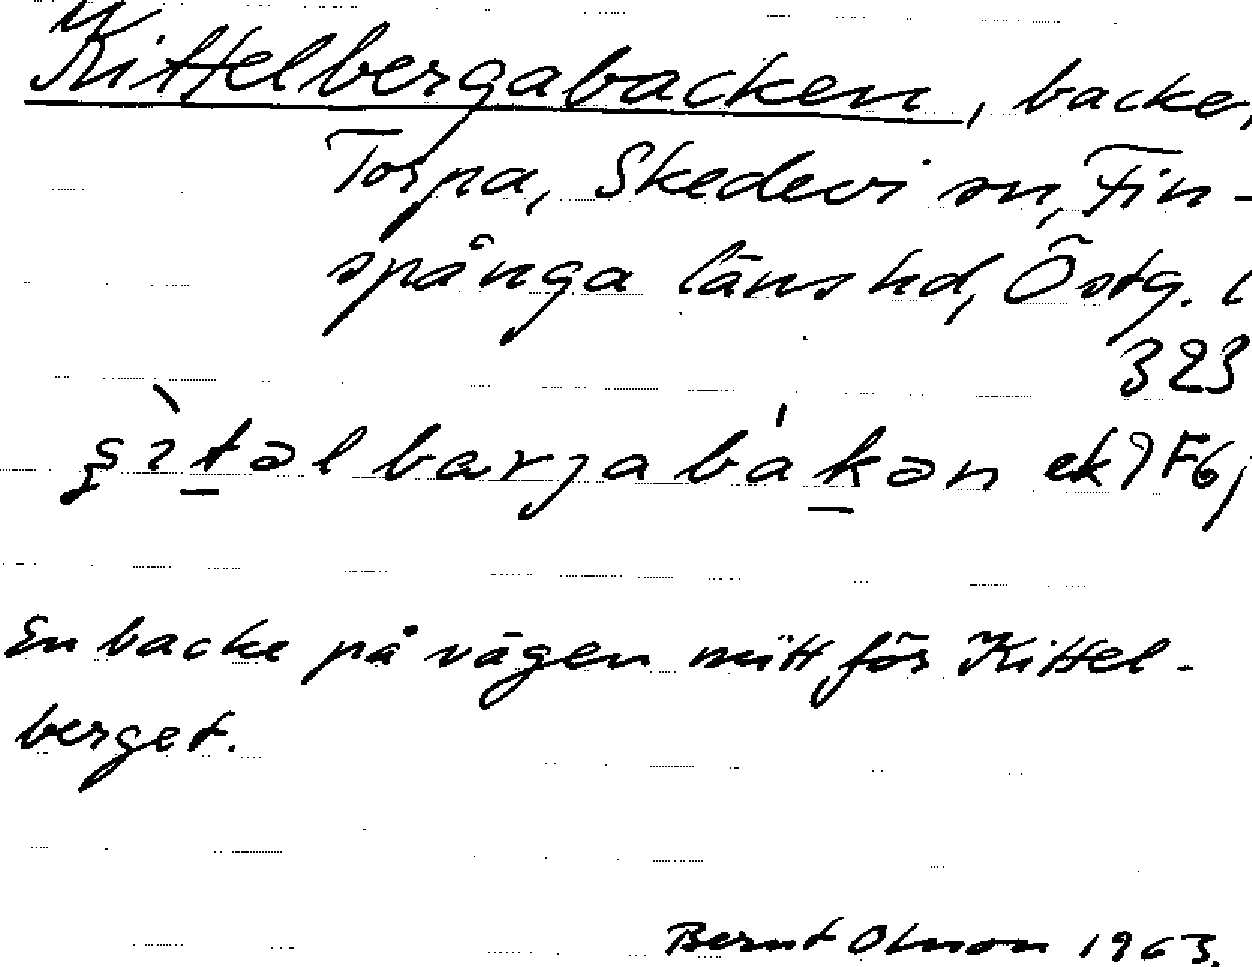 Kittelbergabacken, backe,
Torpa, Skedevi sn, Fin-
spånga länshd, Östg. l
323
En backe på vägen mitt för Kittel-
berget.
Bernt Olsson 1963.